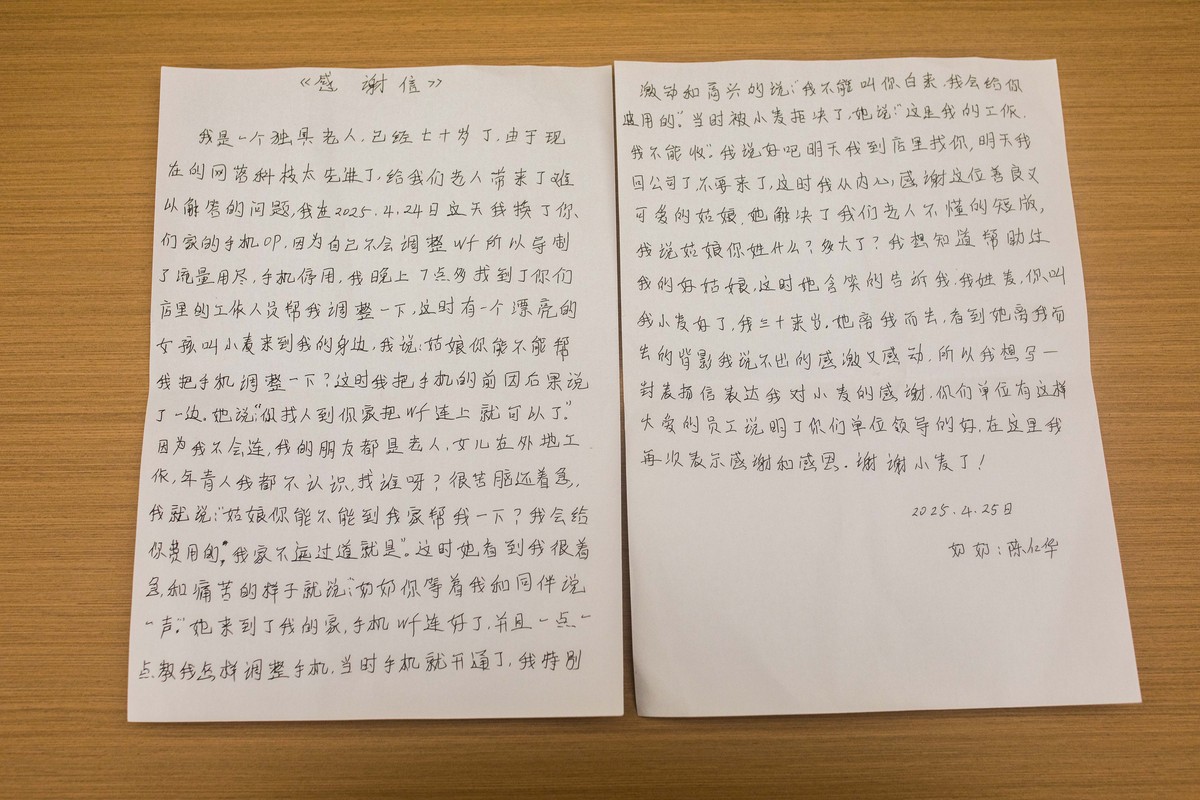 《感谢信》
我是一个独具老人，已经七十岁了，由于现
在的网落科技太先进了，给我们老人带来了难
以解答的问题，我在2025.4.24日这天我换了你
们家的手机OP，因为自己不会调整wf所以导制
了流量用尽，手机停用，我晚上7点多找到了你们
店里的工作人员帮我调整一下，这时有一个漂亮的
女孩叫小麦来到我的身边，我说：姑娘你能不能帮
我把手机调整一下？这时我把手机的前因后果说
了一边。她说：“你找人到你家把wf连上就可以了”
因为我不会连，我的朋友都是老人，女儿在外地工
作，年青人我都不认识，找谁呀？很苦脑还着急，
我就说：“姑娘你能不能到我家帮我一下？我会给
你费用的，我家不远过道就是”。这时她看到我很着
急和痛苦的样子就说：“奶奶你等着我和同伴说
一声。”她来到了我的家，手机wf连好了，并且一点一
点教我怎样调整手机，当时手机就开通了，我特别
激动和高兴的说：“我不能叫你白来，我会给你
费用的。”当时被小麦拒决了，她说：“这是我的工作，
我不能收”。我说好吧明天我到店里找你，明天我
回公司了，不要来了，这时我从内心，感谢这位善良又
可爱的姑娘，她解决了我们老人不懂的短版，
我说姑娘你姓什么？多大了？我想知道帮助过
我的好姑娘，这时她含笑的告诉我，我姓麦，你叫
我小麦好了，我三十来岁。她离我而去，看到她离我而
去的背影我说不出的感激又感动，所以我想写一
封麦扬信表达我对小麦的感谢，你们单位有这样
大爱的员工说明了你们单位领导的好，在这里我
再次表示感谢和感恩。谢谢小麦了！
2025.4.25日
奶奶：陈仁华